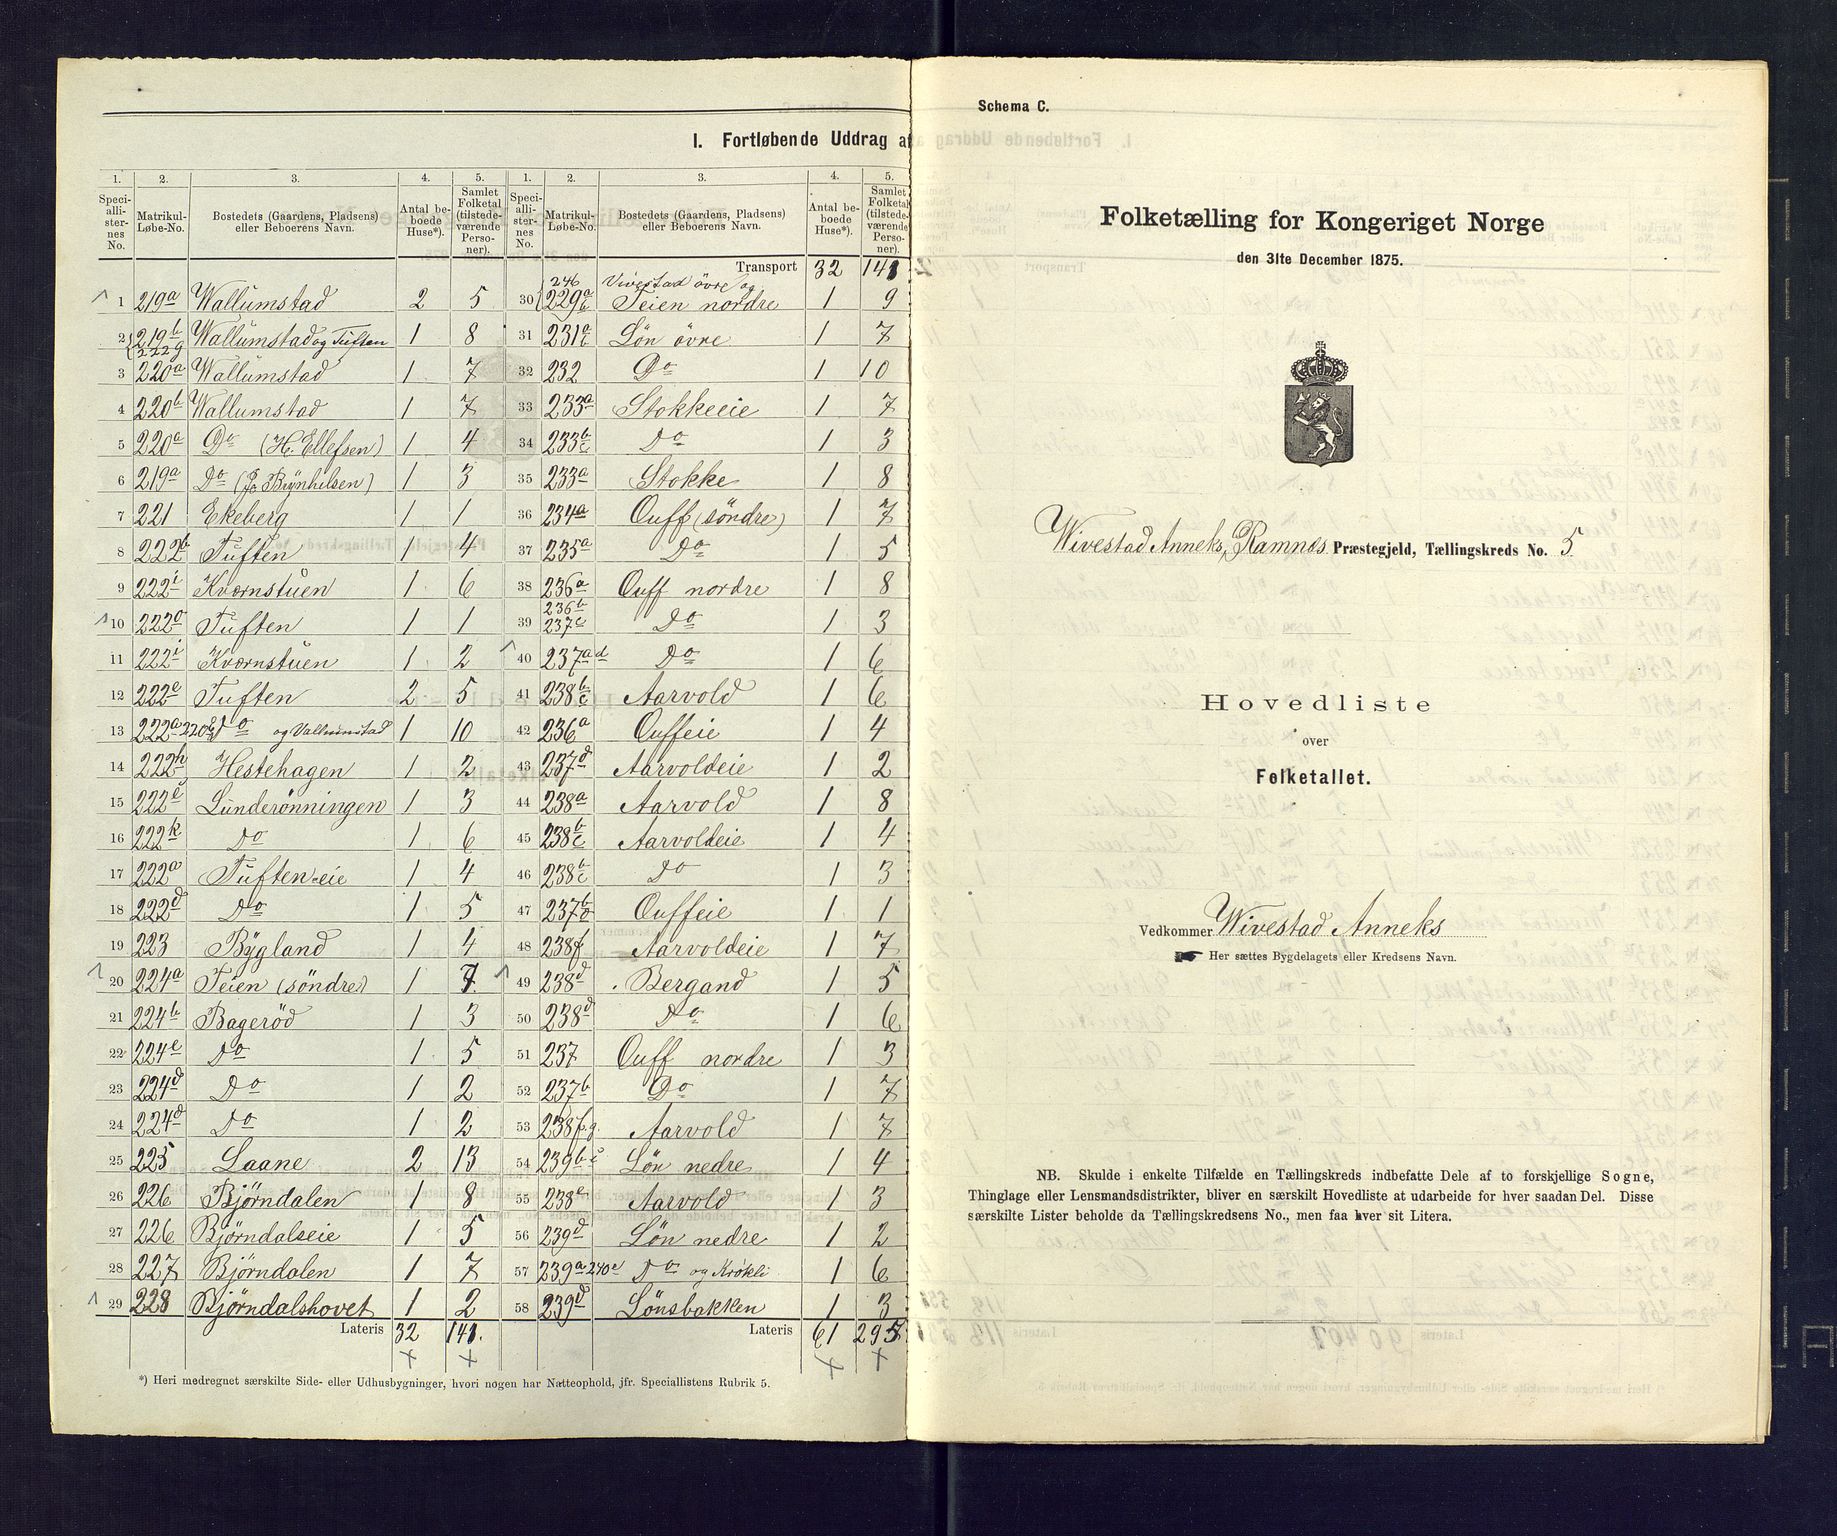 I. Fortløbende Uddrag af
1. 2. 3. 4. 5. 1. 2. 3. 4. 5.
Speciallisternes No. Matrikul-Løbe-No. Bostedets (Gaardens, Pladsens) eller Beboerens Navn. Antal beboede Huse*). Samlet Folketal (tilstedeværende Personer). Speciallisternes No. Matrikul-Løbe-No. Bostedets (Gaardens, Pladsens) eller Beboerens Navn. Antal beboede Huse*). Samlet Folketal (tilstedeværende Personer).
1 219a Wallumstad 2 5
2 219b 222g Wallumstad og Tuften 1 8
3 220a Wallumstad 1 7
4 220b Wallumstad 1 7
5 220a Do (H. Ellefsen) 1 4
6 219a Do (J. Brynhilsen) 1 3
7 221 Ekeberg 1 1
8 222b Tuften 1 4
9 222i Kværnstuen 1 6
10 222o Tuften 1 1
11 222i Kværnstuen 1 2
12 222e Tuften 2 5
13 222a 220 Do og Vallumstad 1 10
14 222h Hestehagen 1 2
15 222c Lunderönningen 1 3
16 222k Do 1 6
17 222a Tufteneie 1 4
18 222d Do 1 5
19 223 Bygland 1 4
20 224a Teien (söndre) 1 7
21 224b Bageröd 1 3
22 224e Do 1 5
23 224d Do 1 2
24 224d Do 1 2
25 225 Laane 2 13
26 226 Bjørndalen 1 8
27 226 Bjørndalseie 1 5
28 227 Bjørndalen 1 7
29 228 Bjørndalshovet 1 2
Lateris 32 141.
Transport 32 141
30 246 229a Vivestad övre og Teien nordre 1 9
31 231a Lön övre 1 7
32 232 Do 1 10
33 233a Stokkeeie 1 7
34 233b c Do 1 3
35 233a Stokke 1 8
36 234a Ouff (söndre) 1 7
37 235a Do 1 5
38 236a Ouff nordre 1 8
39 236b 237c Do 1 3
40 237a d Do 1 6
41 238b c Aarvold 1 6
42 236a Ouffeie 1 4
43 237d Aarvoldeie 1 2
44 238a Aarvold 1 8
45 238b c Aarvoldeie 1 4
46 238b c Do 1 3
47 237b Ouffeie 1 1
48 238f Aarvoldeie 1 7
49 238d Bergand 1 5
50 238d Do 1 6
51 237 Ouff nordre 1 3
52 237b Do 1 7
53 238f.g. Aarvold 1 7
54 239b c Lön nedre 1 4
55 238e Aarvold 1 3
56 239d Lön nedre 1 2
57 239a 240e Do og Krökli 1 6
58 239d Lönsbakken 1 3
Lateris 61 295
*) Heri medregnet særskilte Side- eller Udhusbygninger, hvori nogen har Natteophold, jfr. Speciallistens Rubrik 5.
Schema C.
Folketælling for Kongeriget Norge
den 31te December 1875.
Wivestad Anneks, Ramnes Præstegjeld, Tællingskreds No. 5
Hovedliste
over
Folketallet.
Vedkommer Wivestad Anneks
Her sættes Bygdelagets eller Kredsens Navn.
NB. Skulde i enkelte Tilfælde en Tællingskreds indbefatte Dele af to forskjellige Sogne,
Thinglage eller Lensmandsdistrikter, bliver en særskilt Hovedliste at udarbeide for hver saadan Del. Disse
særskilte Lister beholde da Tællingskredsens No., men faa hver sit Litera.